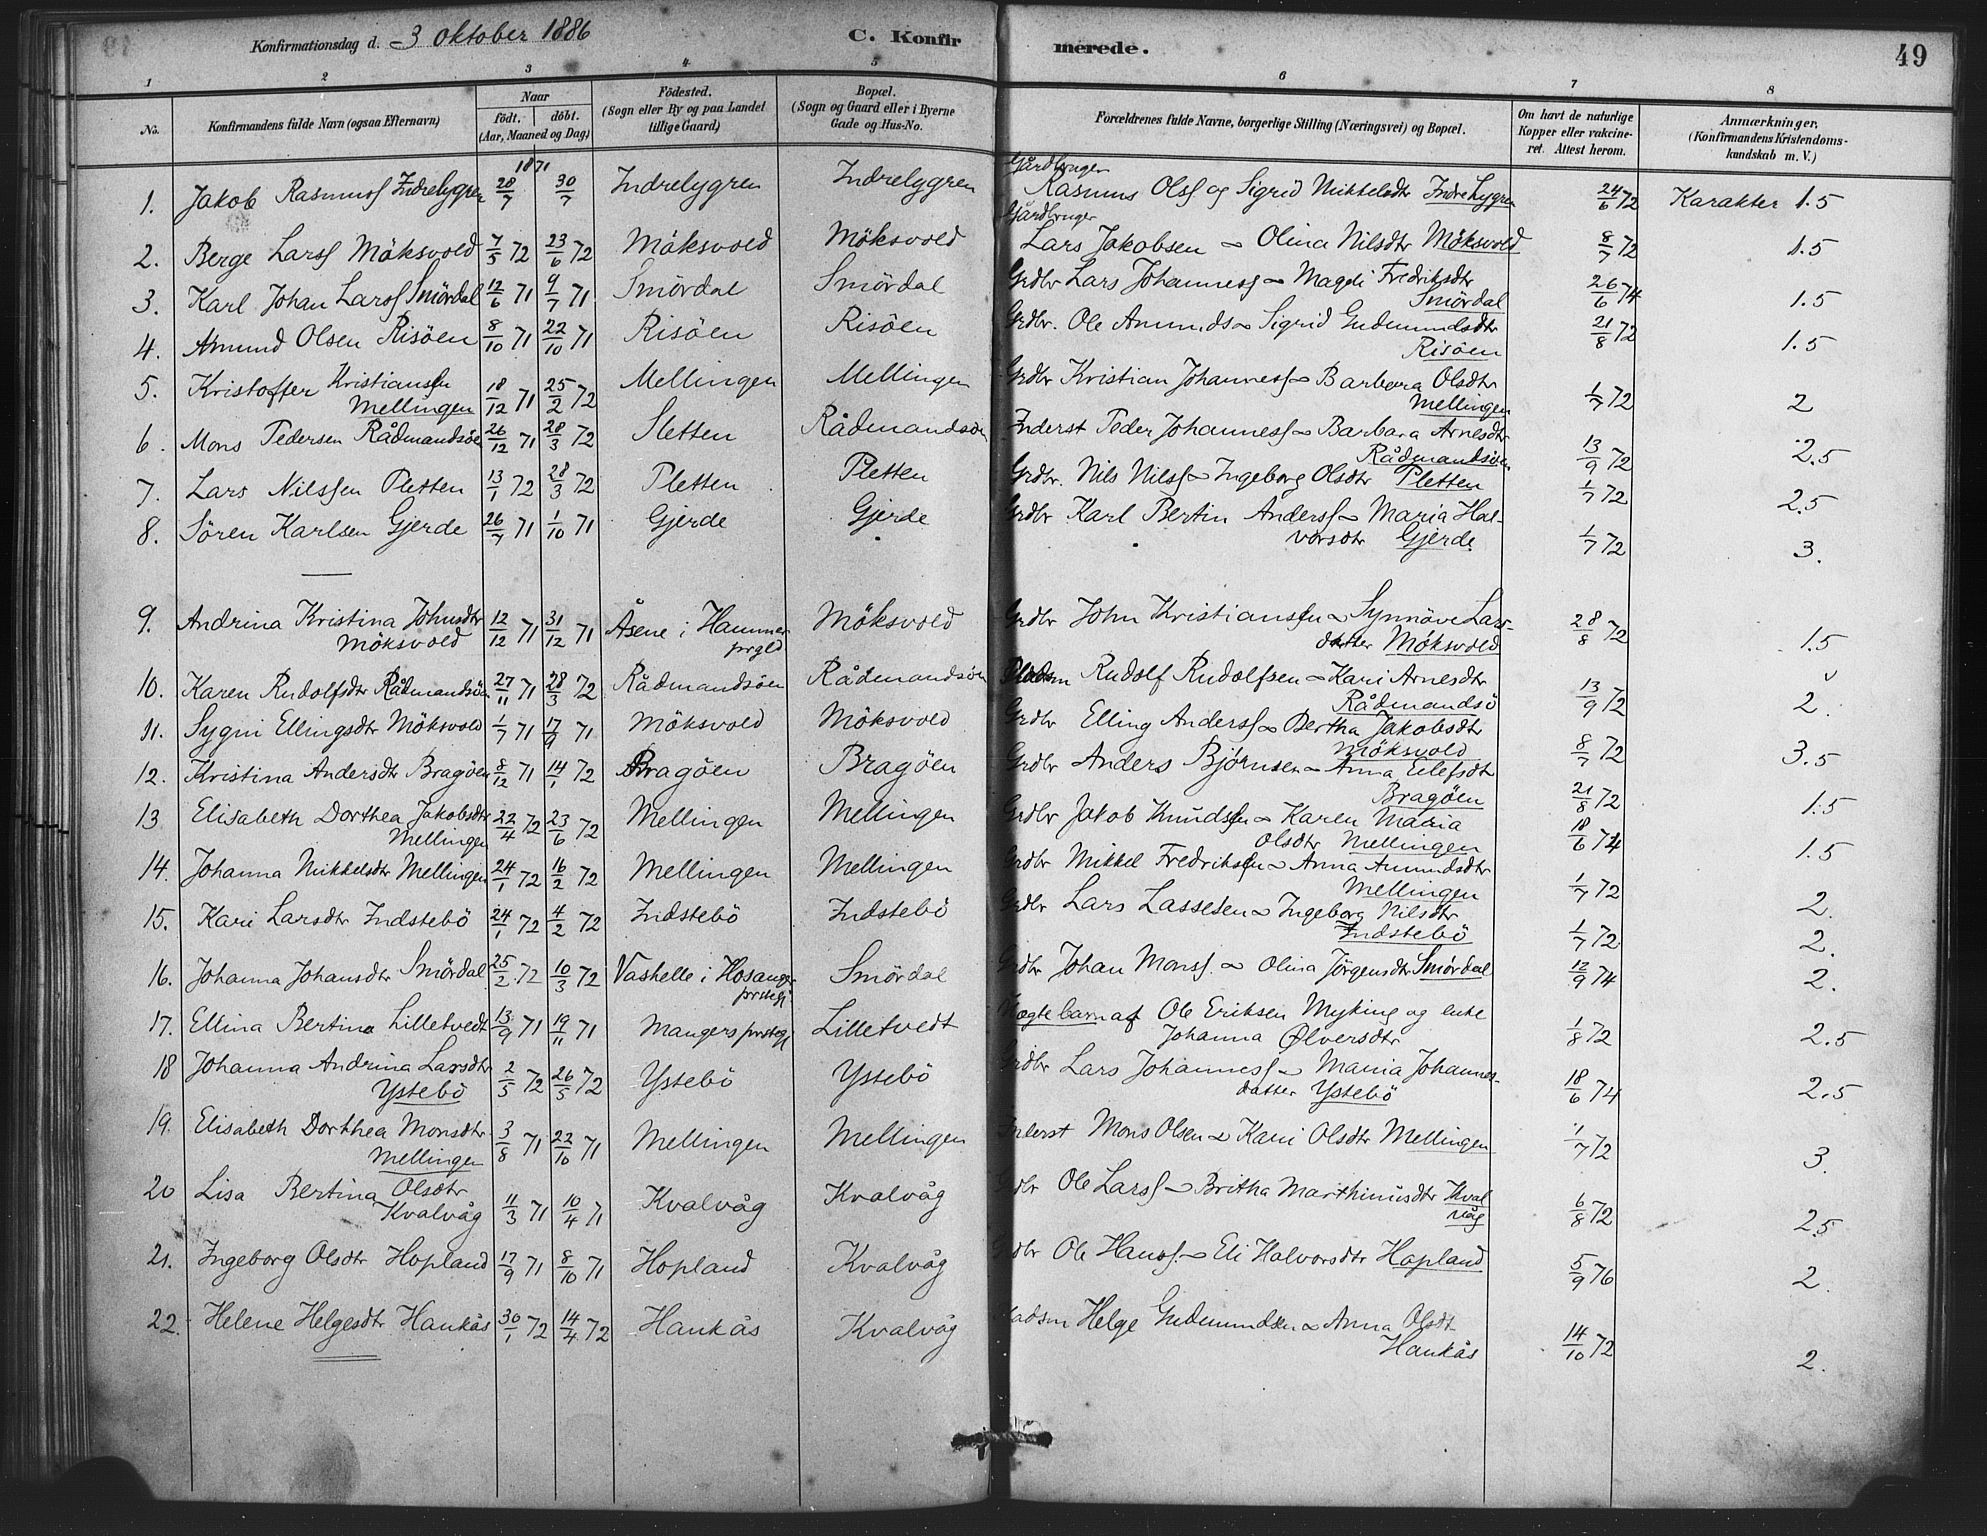 Konfirmationsdag d. 3 Oktober 1886 C. Konfirmerede. 49
1 2 3 4 5 6 7 8
No. Konfirmandens fulde Navn (ogsaa Efternavn) Naar födt, döbt. (Aar, Maaned og Dag) Födested. (Sogn eller By og paa Landet tillige Gaard) Bopæl. (Sogn og Gaard eller i Byerne Gade og Hus-No. Forældrenes fulde Navne, borgerlige Stilling (Næringsvei) og Bopæl. Om havt de naturlige Kopper eller vakcineret. Attest herom. Anmærkninger, (Konfirmandens Kristendomskundskab m. V.)
1871
Gårdbruger
1. Jakob Rasmuss Indrelygren 28/7 30/7 Indrelygren Indrelygren Rasmus Olss og Sigrid Mikkelsdtr Indrelygren 24/6 72 Karakter 1.5
Gårdbruger
2. Berge Larss Möksvold 7/5 72 23/6 72 Möksvold Möksvold Lars Jakobsen & Olina Nilsdtr Möksvold 8/7 72 1.5
3. Karl Johan Larss Smördal 12/6 71 9/7 71 Smördal Smördal Grdbr Lars Johanness & Magdi Fredriksdtr
Smördal 26/6 74 1.5
4. Amund Olsen Risöen 8/10 71 22/10 71 Risöen Risöen Grdbr. Ole Amunds & Sigrid Gudmundsdtr
Risöen 21/8 72 1.5
5. Kristoffer Kristianssen
Mellingen 18/12 71 25/2 72 Mellingen Mellingen Grdbr Kristian Johanness & Barbera Olsdtr
Mellingen 1/7 72 2
6. Mons Pedersen Rådmandsöen 26/12 71 28/3 72 Sletten Rådmandsöen Inderst Peder Johanness & Barbara Arnesdtr
Rådmandsöen 13/9 72 2.5
7. Lars Nilssen Pletten 13/1 72 28/3 72 Pletten Pletten Grdbr. Nils Nilss & Ingeborg Olsdtr Pletten 1/7 72 2.5
8. Sören Karlsen Gjerde 26/7 71 1/10 71 Gjerde Gjerde Grdbr Karl Bertin Anderss & Maria Hal-
vorsdtr Gjerde 1/7 72 3.
9. Andrina Kristina Johnsdtr
Möksvold 12/12 71 31/12 71 Åsene i Hammer
prgld Möksvold Grdbr John Kristianssen & Synnöve Lars-
datter Möksvold 28/8 72 1.5
10. Karen Rudolfsdtr Rådmandsöen 27/11 71 28/3 72 Rådmandsöen Rådmandsöen Pladsm Rudolf Rudolfsen & Kari Arnesdtr
Rådmandsö 13/9 72 2.
11. Sygni Ellingsdtr Möksvold 1/7 71 17/9 71 Möksvold Möksvold Grdbr Elling Anderss & Bertha Jakobsdtr
Möksvold 8/7 72 3.5
12. Kristina Andersdtr Bragöen 8/12 71 14/1 72 Bragöen Bragöen Grdbr Anders Björnsen & Anna Eilefsdtr
Bragöen 21/8 72 1.5
13 Elisabeth Dorthea Jakobsdtr
Mellingen 22/4 72 23/6 72 Mellingen Mellingen Grdbr Jakob Knudssen & Karen Maria
Olsdtr Mellingen 18/6 74 1.5
14. Johanna Mikkelsdtr Mellingen 24/1 72 16/2 72 Mellingen Mellingen Grdbr Mikkel Fredrikssen & Anna Amundsdtr
Mellingen 1/7 72 2.
15. Kari Larsdtr Indstebö 24/1 72 4/2 72 Indstebö Indstebö Grdbr Lars Lassesen & Ingeborg Nilsdtr
Indstebö 1/7 72 2.
16. Johanna Johansdtr Smördal 25/2 72 10/3 72 Vaskelle i Hosanger
prstegj Smördal Grdbr Johan Monss. & Olina Jörgensdtr Smördal 12/9 74 2.
17. Ellina Bertina Lilletvedt 13/9 71 19/11 71 Mangers prstegj Lilletvedt Lægtebarn af Ole Eriksen Myking og enke
Johanna Ølversdtr 1/8 72 2.5
18 Johanna Andrina Larsdtr
Ystebö 2/5 72 26/5 72 Ystebö Ystebö Grdbr Lars Johanness & Maria Johannes-
datter Ystebö 18/6 74 2.5
19. Elisabeth Dorthea Monsdtr
Mellingen 3/8 71 22/10 71 Mellingen Mellingen Inderst Mons Olsen & Kari Olsdtr Mellingen 1/7 72 3.
20 Lisa Bertina Olsdtr
Kvalvåg 11/3 71 10/4 71 Kvalvåg Kvalvåg Grdbr Ole Larss & Britha Marthinusdtr Kval
våg 6/8 72 2.5
21. Ingeborg Olsdtr Hopland 17/9 71 8/10 71 Hopland Kvalvåg Grdbr Ole Hanss. & Eli Halvorsdtr Hopland 5/9 76 2.
22. Helene Helgesdtr Haukås 30/1 72 14/4 72 Haukås Kvalvåg Pladsm Helge Gudmundsen & Anna Olsdtr
Haukås 14/10 72 2.